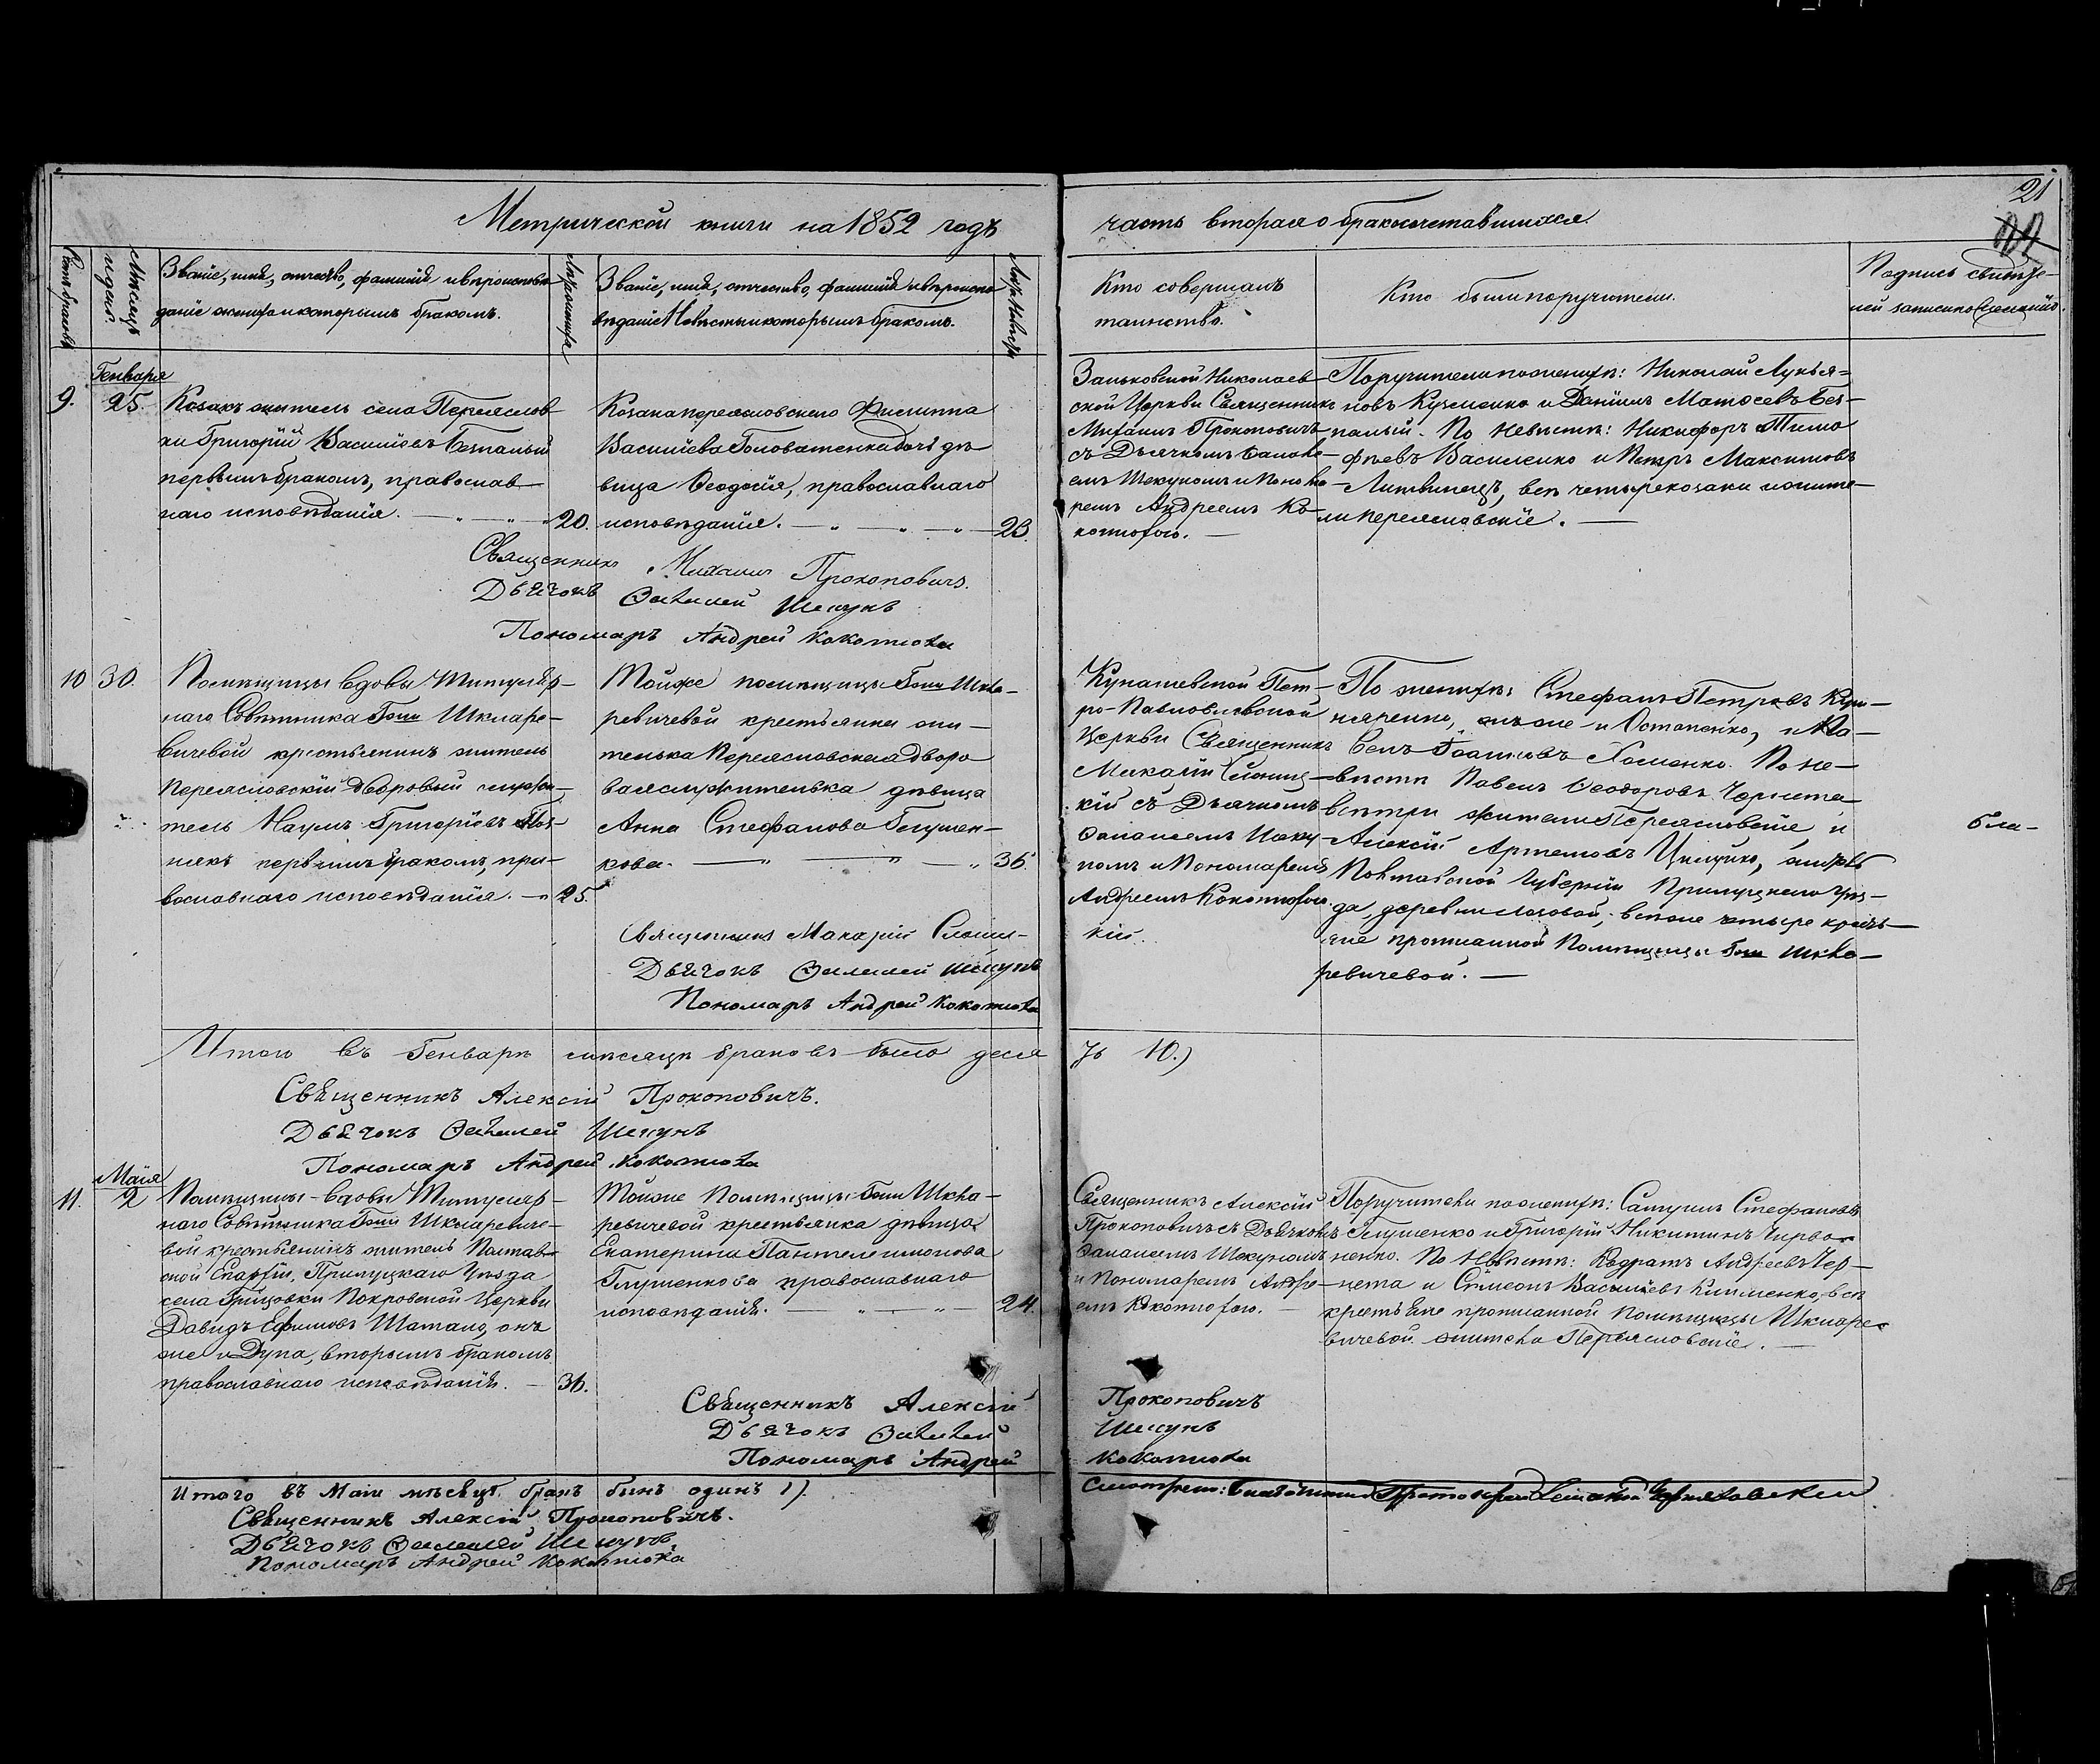 21
Метрической книги на 1852 годъ часть вторая о бракосочетавшихся
Счетъ браковъ
Мѣсяцъ и день.
Званіе, имя, отчество, фамилія и вѣроисповѣ
даніе жениха и которымъ бракомъ.
Лѣта жениха
Званіе, имя, отчество, фамилія и вѣроиспо
вѣданіе Невѣсты и которымъ бракомъ.
Лѣта Невѣсты
Кто совершалъ
таинство.
Кто были поручители.
Подпись свидѣте-
лей записи по желанію.
Генваря
9. 25.
Козакъ житель села Переяслов
ки Григорій Васильевъ Безпалый
первымъ бракомъ, православ
наго исповѣданія. 20.
Козака переясловского Филиппа
Васильева Головатенка дочь дѣ
вица Феодосія, православнаго
исповѣданія. 23.
Заньковской Николаев
ской Церкви Священникъ
Михаилъ Прокоповичъ
съ Дьячкомъ
емъ Шекуномъ и Понома
ремъ Андреемъ Ко-
котюхою.
Поручители по женихѣ: Николай Лукья-
новъ Кузменко и Даніилъ Матфеевъ Без-
палый. По Невѣстѣ: Никифоръ Тимо
фѣевъ Василенко и Петръ Максимовъ
Литвинецъ, всѣ четыре козаки и жите-
ли переясловскіе.
Священникъ Михаилъ Прокоповичъ.
Дьячокъ Шекунъ
Пономарь Андрей Кокотюха
10 30.
Помѣщицы вдовы Титуляр-
наго Совѣтника Гжи Шкляре-
вичевой крестьянинъ житель
Переясловскій дворовый служи-
тель Наумъ Григорьевъ
первымъ бракомъ, пра-
вославнаго исповѣданія. 25.
Тойже помѣщицы Гжи Шкля-
ревичевой крестьянка жи-
телька Переясловская дворо
вая служителька дѣвица
Анна Стефанова Глушен-
кова. 36.
Кунашевской Пет-
ро-Павловской
Церкви Священникъ
Макарій
кій съ Дьячкомъ
номъ и Пономаремъ
Андреемъ Кокотюхою
По женихѣ: Стефанъ Петровъ
онъ же и Остапенко, и Па-
велъ Хоменко. По не-
вѣстѣ Павелъ Феодоровъ
всѣ три жители Переясловскіе, и
Алексій Артемовъ житель
Полтавской Губерніи Прилуцкаго Уѣз-
да, деревни Лозовой, всѣ же четыре крестья-
не прописанной Помѣщицы Гжи Шкля-
ревичевой.
Священникъ Макарій
Дьячокъ Шекунъ
Пономарь Андрей Кокотюха
Итого въ Генварѣ мѣсяцѣ браковъ было деся ть 10.)
Священникъ Алексій Прокоповичъ.
Дьячокъ Шекунъ
Пономарь Андрей Кокотюха
Маія
11. 2
Помѣщицы-вдовы Титуляр-
наго Совѣтника Гжи Шкляревиче-
вой крестьянинъ житель Полтав-
ской Епархіи, Прилуцкаго Уѣзда
села Грицовки Покровской Церкви
Давидъ Ефимовъ Шатало, онъ
же и Дупа, вторымъ бракомъ
православнаго исповѣданія. 36.
Тойже Помѣщицы Гжи Шкля-
ревичевой крестьянка дѣвица
Екатерина Пантелеимонова
Глушенкова православнаго
исповѣданія. 24.
Священникъ Алексій
Прокоповичъ съ Дьячкомъ
Шекуномъ
и Пономаремъ Андре-
емъ Кокотюхою.
Поручители по женихѣ: Самуилъ Стефановъ
Глушенко и Григорій Никитинъ Черво-
ненко. По Невѣстѣ: Кодратъ Андреевъ
и Симеонъ Васильевъ Клименко, всѣ
крестьяне прописанной помѣщицы Шкляре-
вичевой жители Переясловскіе.
Священникъ Алексій Прокоповичъ
Дьячокъ Шекунъ
Пономарь Андрей Кокотюха
Итого въ Маіи мѣсяцѣ бракъ былъ одинъ 1).
Священникъ Алексій Прокоповичъ.
Дьячокъ Шекунъ
Пономарь Андрей Кокотюха